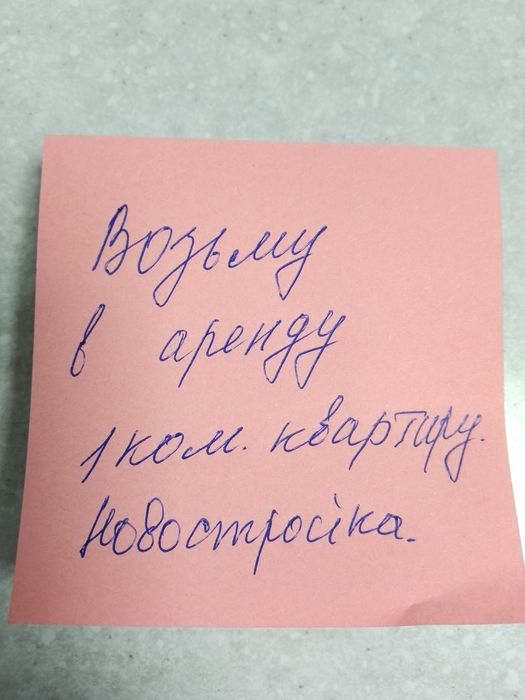 Возьму
в аренду
1 ком. квартиру.
Новостройка.